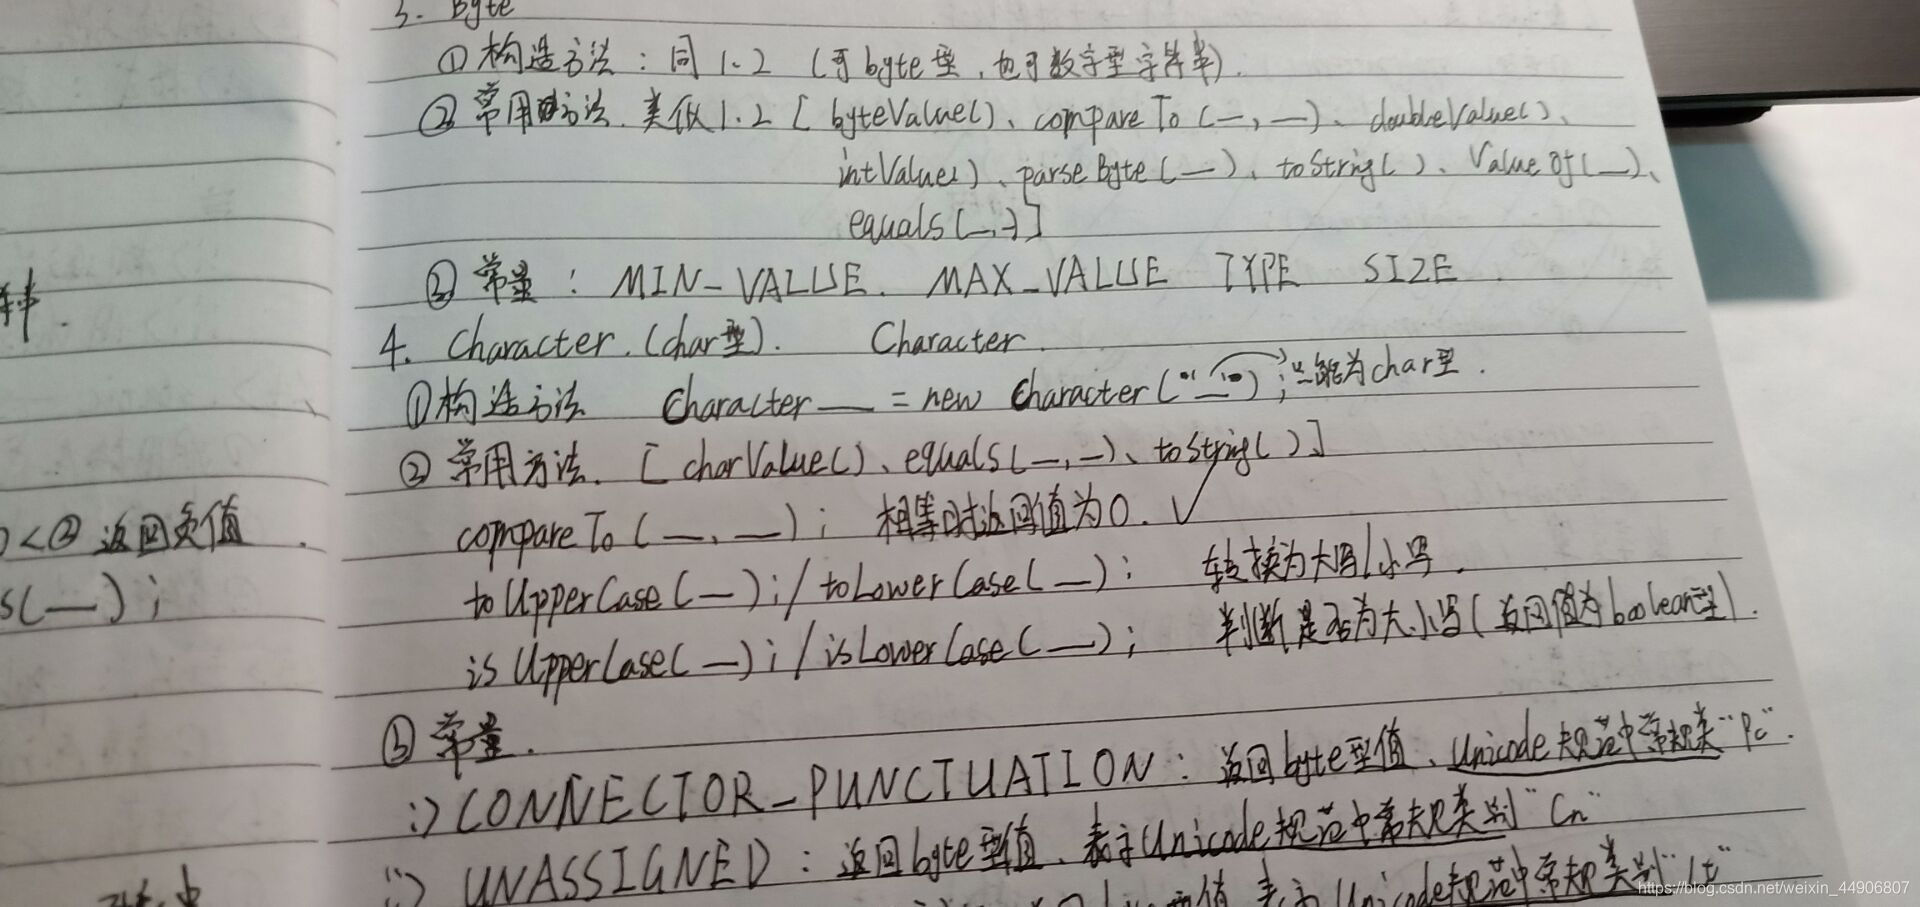 3. Byte
①构造方法：同1.2（可byte型，也可数字型字符串）.
②常用方法.类似1.2[byteValue()、compareTo(—,—)、doubleValue()、
intValue()、parseByte(—)、toString()、ValueOf(—)、
equals(—,—)]
③常量：MIN_VALUE. MAX_VALUE TYPE SIZE
4. Character.(char型). Character.
①构造方法 Character — = new Character("—"); 只能为char型.
②常用方法.[charValue()、equals(—,—)、toString()]
compareTo(—,—); 相等时返回值为0. ✓
toUpperCase(—);/toLowerCase(—); 转换为大写/小写.
isUpperCase(—);/isLowerCase(—); 判断是否为大小写(返回值为boolean型).
③常量.
i) CONNECTOR_PUNCTUATION: 返回byte型值、Unicode规范中常规类"Pc".
ii) UNASSIGNED: 返回byte型值、表示Unicode规范中常规类别"Cn"
值 表示Unicode规范中常规类别
<②返回负值.
s(—);
https://blog.csdn.net/weixin_44906807